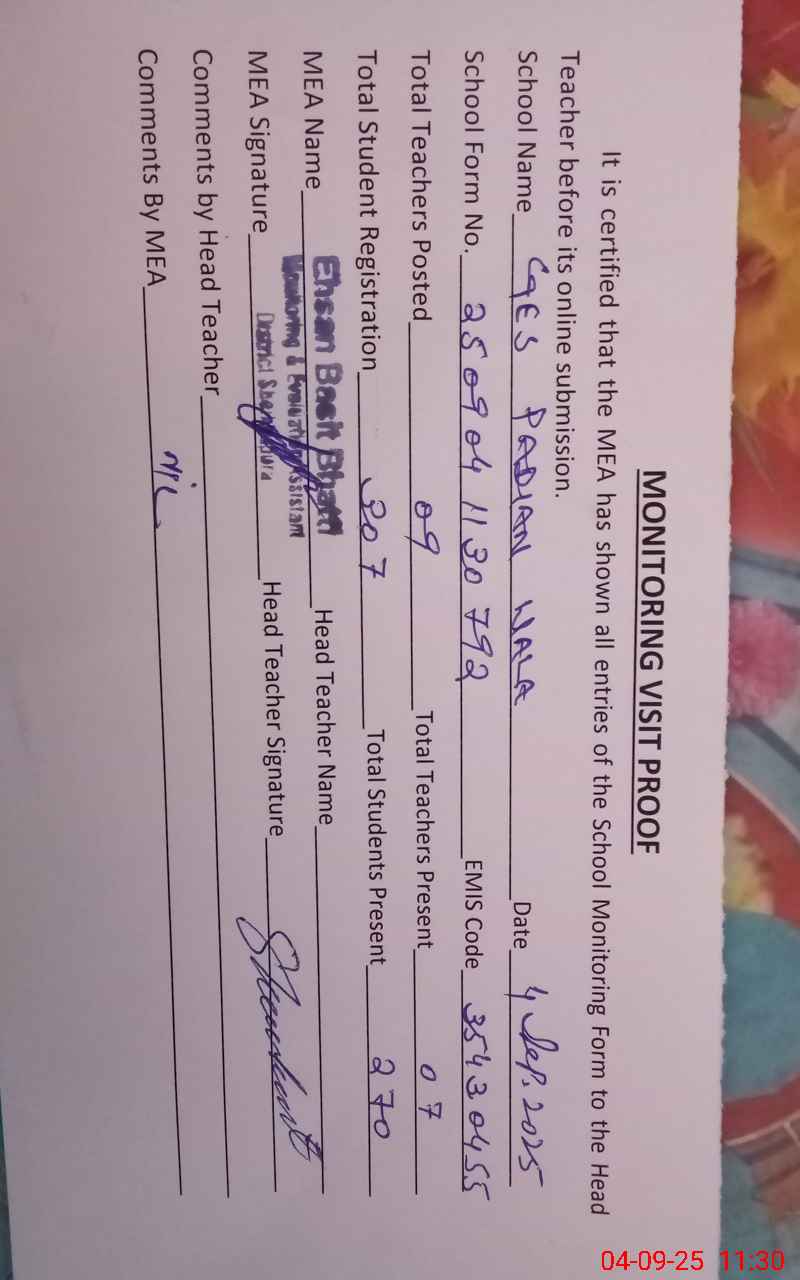 MONITORING VISIT PROOF
It is certified that the MEA has shown all entries of the School Monitoring Form to the Head
Teacher before its online submission.
School Name GES PADIAN WALA Date 4 Sep. 2025
School Form No. 250904 1130 792 EMIS Code 35430455
Total Teachers Posted 09 Total Teachers Present 07
Total Student Registration 307 Total Students Present 270
MEA Name Ehsan Basit Bhatti Head Teacher Name
Monitoring & Evaluation Assistant
District
MEA Signature Head Teacher Signature
Comments by Head Teacher
Comments By MEA Nil
04-09-25 11:30